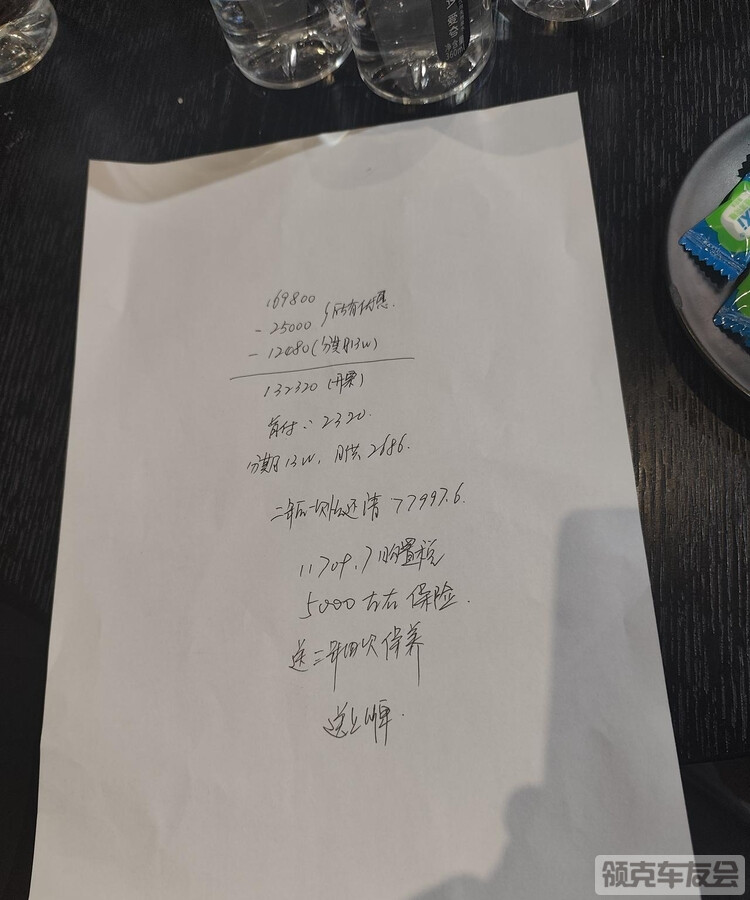 169800
- 25000 所有优惠.
- 12480(分期13W)
132320 (开票)
首付: 2320.
分期13W, 月供2686.
二年后一次性还清 77997.6.
11709.7 购置税
5000左右 保险.
送二年四次保养
送上牌.
领克车友会